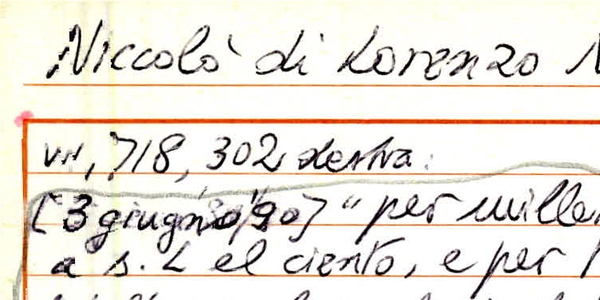 Niccolò di Lorenzo
VII, 718, 302 destra.
[3 giugno '90] "per mille
a s. L el ciento, e per